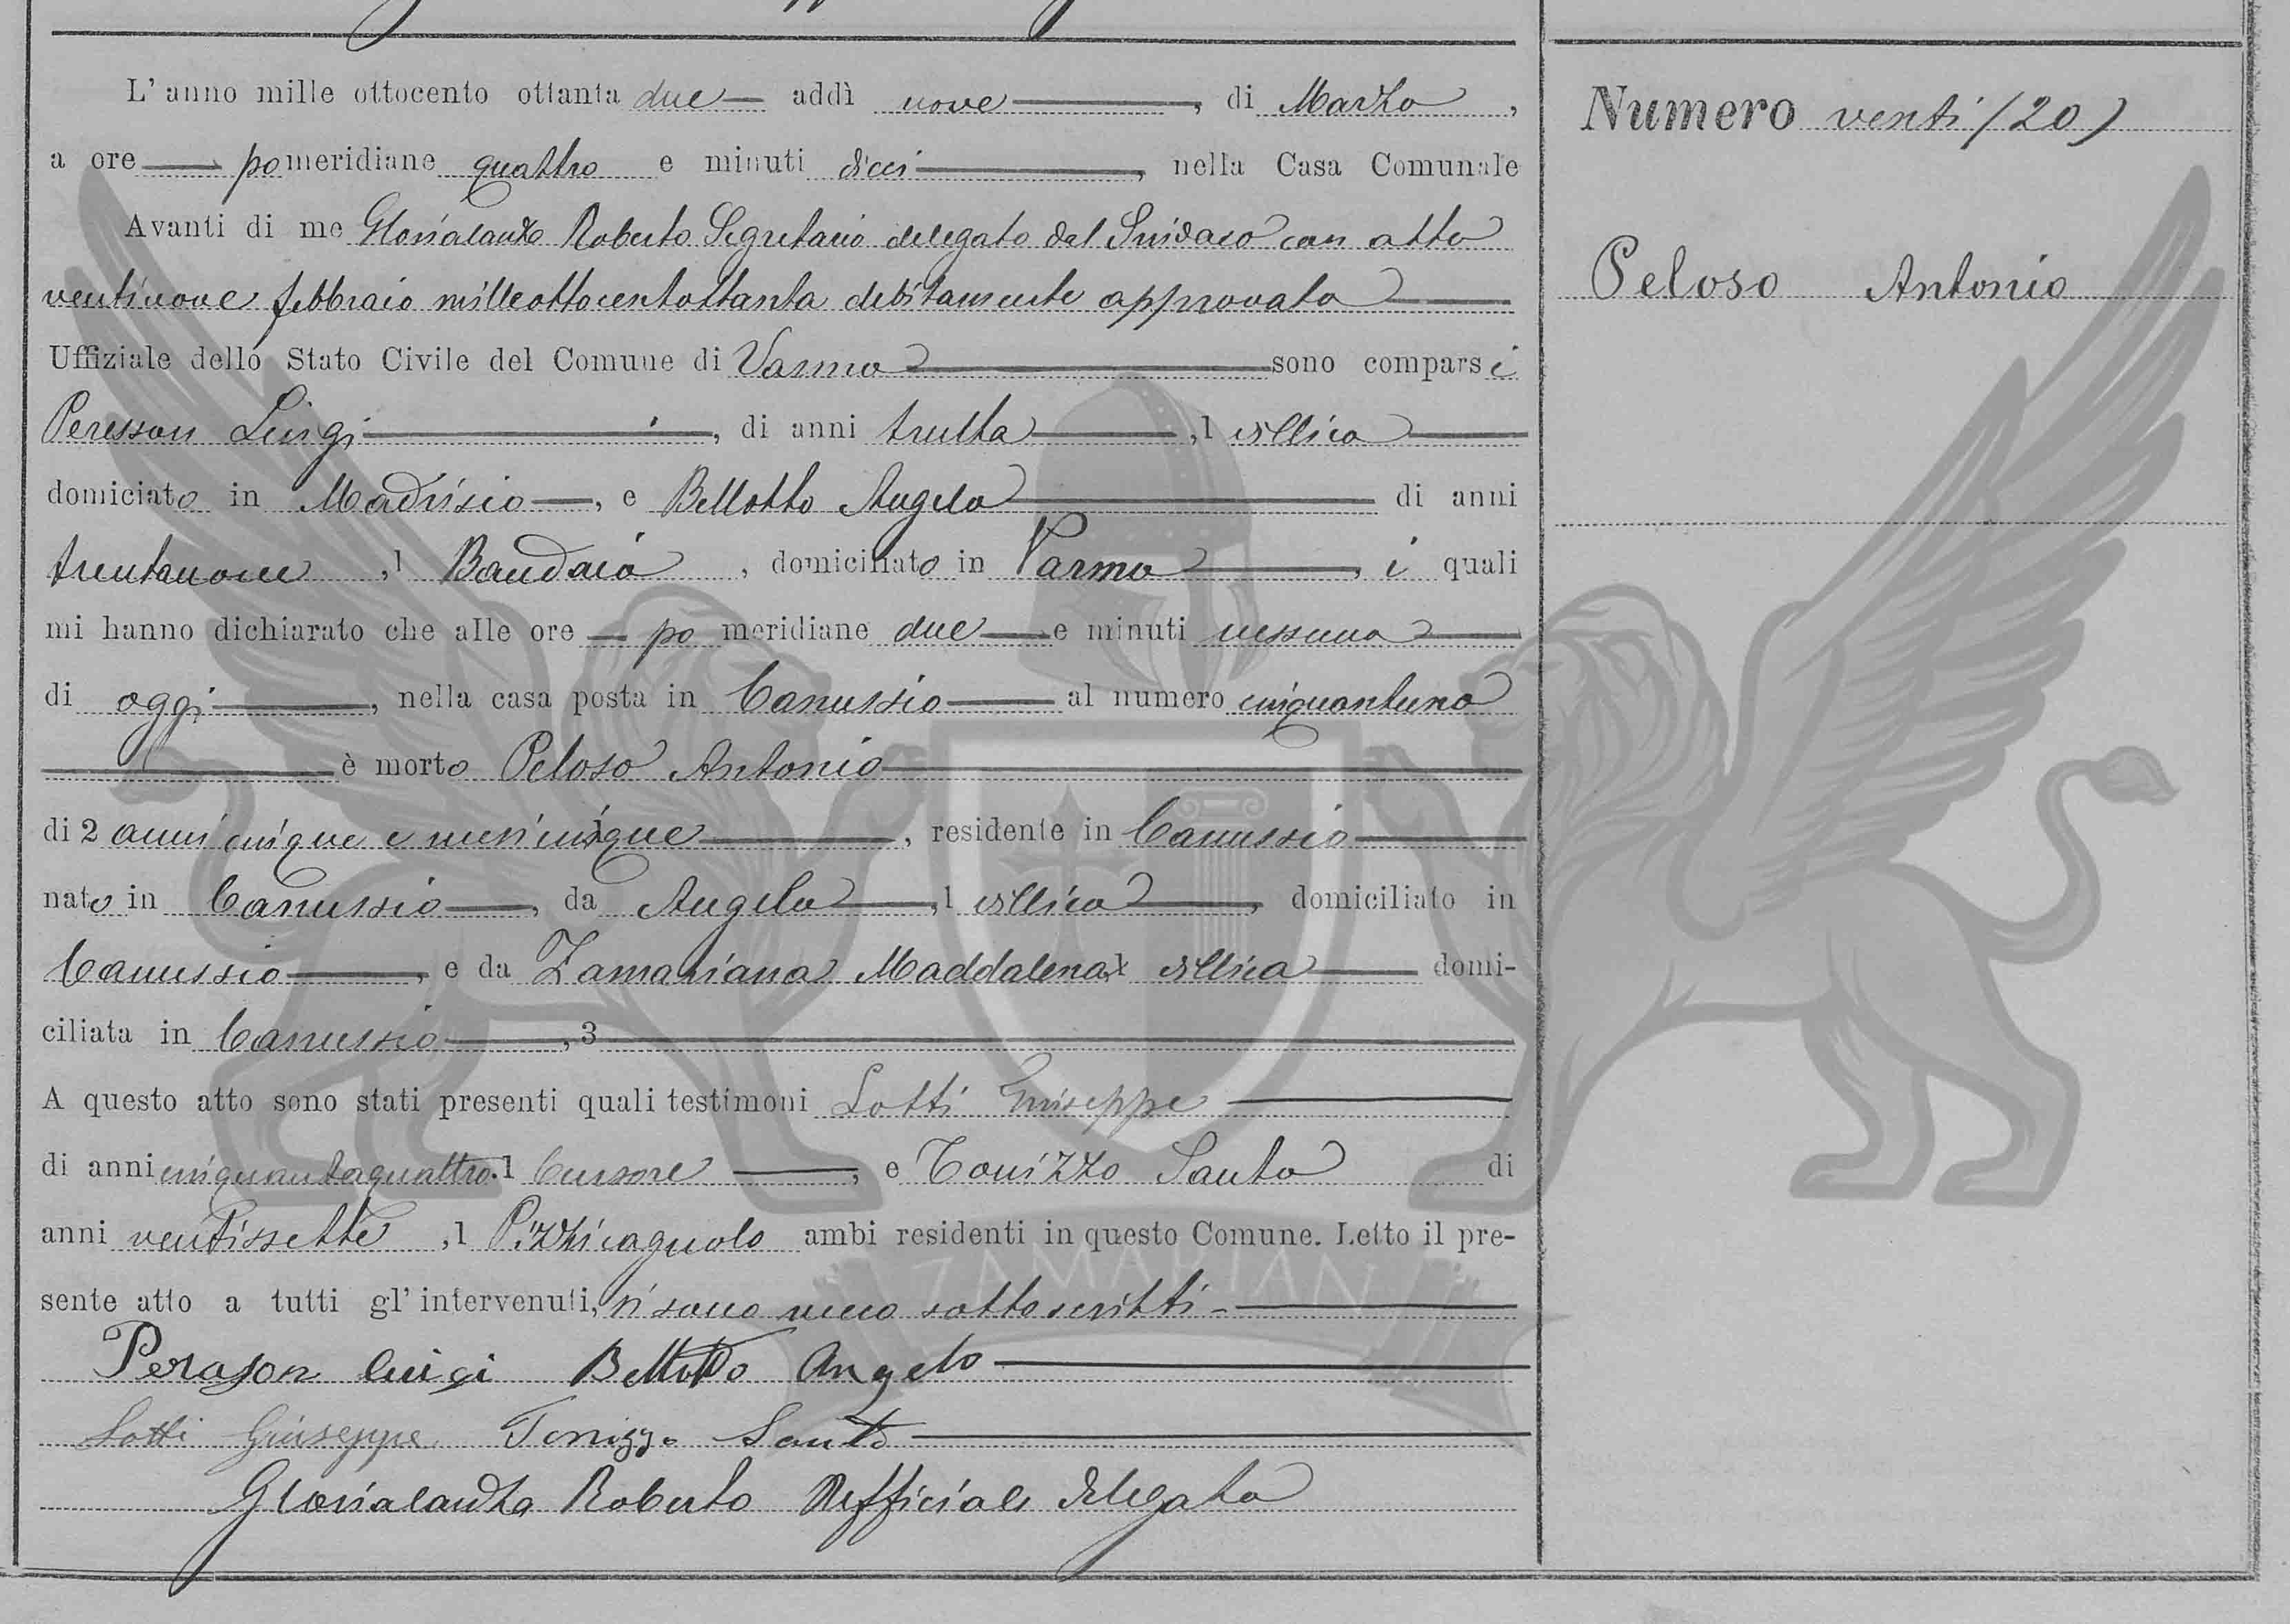 L' anno mille ottocento ottanta due addì nove, di Marzo,
a ore pomeridiane quattro e minuti dieci, nella Casa Comunale
Avanti di me Glorialanza Roberto Segretario delegato dal Sindaco con atto
ventinove febbraio milleottocentottanta debitamente approvato
Uffiziale dello Stato Civile del Comune di Varmo sono comparsi
Peresson Luigi, di anni trenta, 1 villico
domiciato in Madrisio, e Bellotto Angelo di anni
trentanove, 1 Bandaio, domiciliato in Varmo, i quali
mi hanno dichiarato che alle ore po meridiane due e minuti nessuno
di oggi, nella casa posta in Canussio al numero cinquantuno
è morto Peloso Antonio
di 2 anni cinque e mesi cinque, residente in Canussio
nato in Canussio, da Angelo, 1 villico, domiciliato in
Canussio, e da Zamariana Maddalena 1 villica domi-
ciliata in Canussio, 3
A questo atto sono stati presenti quali testimoni Lotti Giuseppe
di anni cinquantaquattro. 1 Cursore, e Tonizzo Santo di
anni ventissette, 1 Pizzicagnolo ambi residenti in questo Comune. Letto il pre-
sente atto a tutti gl' intervenuti, si sono meco sottoscritti -
Perason luigi Bellotto Angelo
Lotti Giuseppe Tonizzo Santo
Glorialanza Roberto Ufficiale delegato
Numero venti (20)
Peloso Antonio
ZAMARIAN